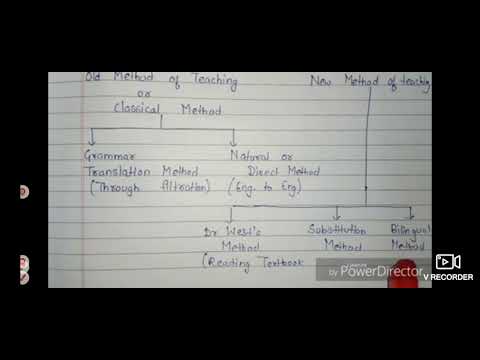 Old Method of Teaching
or
Classical Method
New Method of teaching
Grammar
Translation Method
(Through Altration)
Natural or
Direct Method
(Eng. to Eng)
Dr West's
Method
(Reading Textbook
Substitution
Method
Bilingual
Method
by PowerDirector
V RECORDER